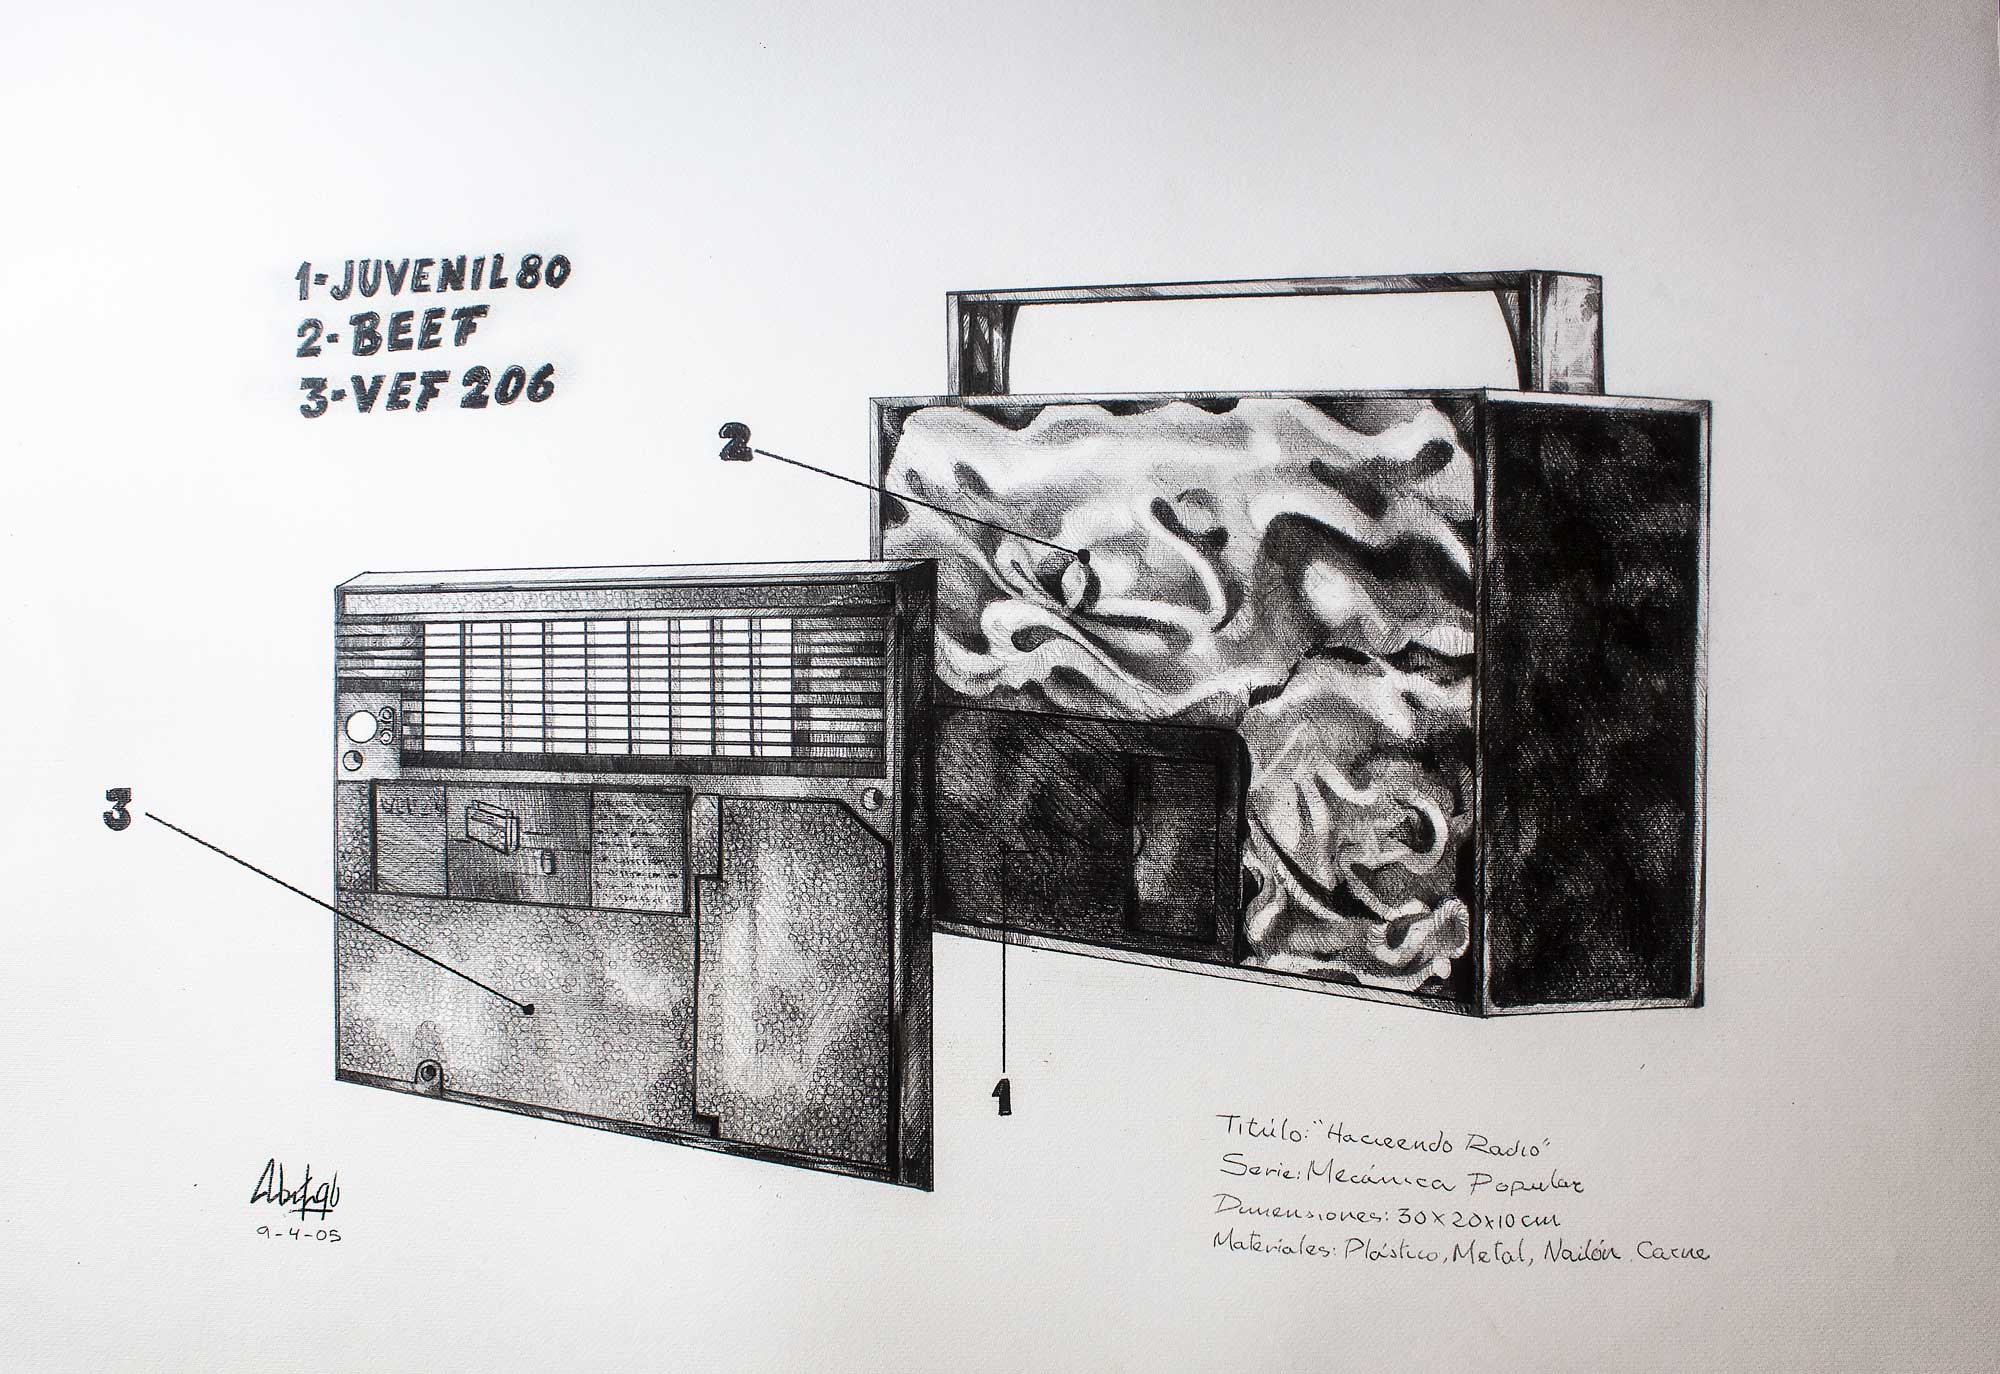 1-JUVENIL 80
2-BEEF
3-VEF 206
2
3
1
Titúlo: "Hacieendo Radio"
Serie: Mecánica Popular
Dimensiones: 30x20x10cm
Materiales: Plástico, Metal, Nailón, Carne
9-4-05